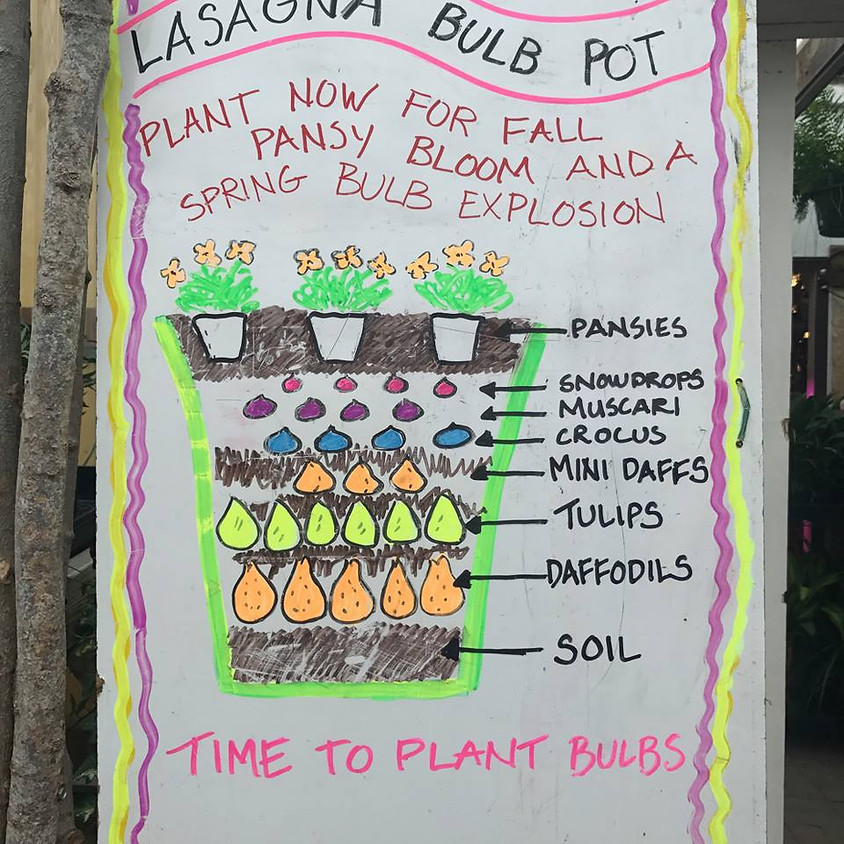 LASAGNA BULB POT
PLANT NOW FOR FALL
PANSY BLOOM AND A
SPRING BULB EXPLOSION
PANSIES
SNOWDROPS
MUSCARI
CROCUS
MINI DAFFS
TULIPS
DAFFODILS
SOIL
TIME TO PLANT BULBS